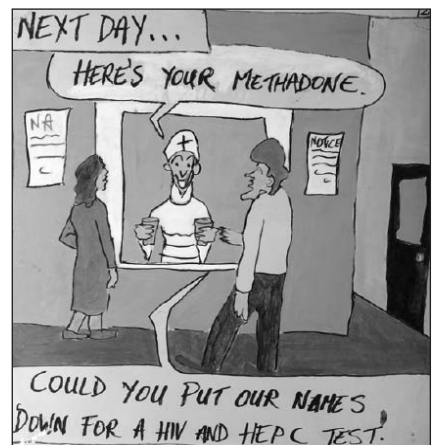 NEXT DAY...
HERE'S YOUR METHADONE.
NA
NOTICE
COULD YOU PUT OUR NAMES
DOWN FOR A HIV AND HEP C TEST.